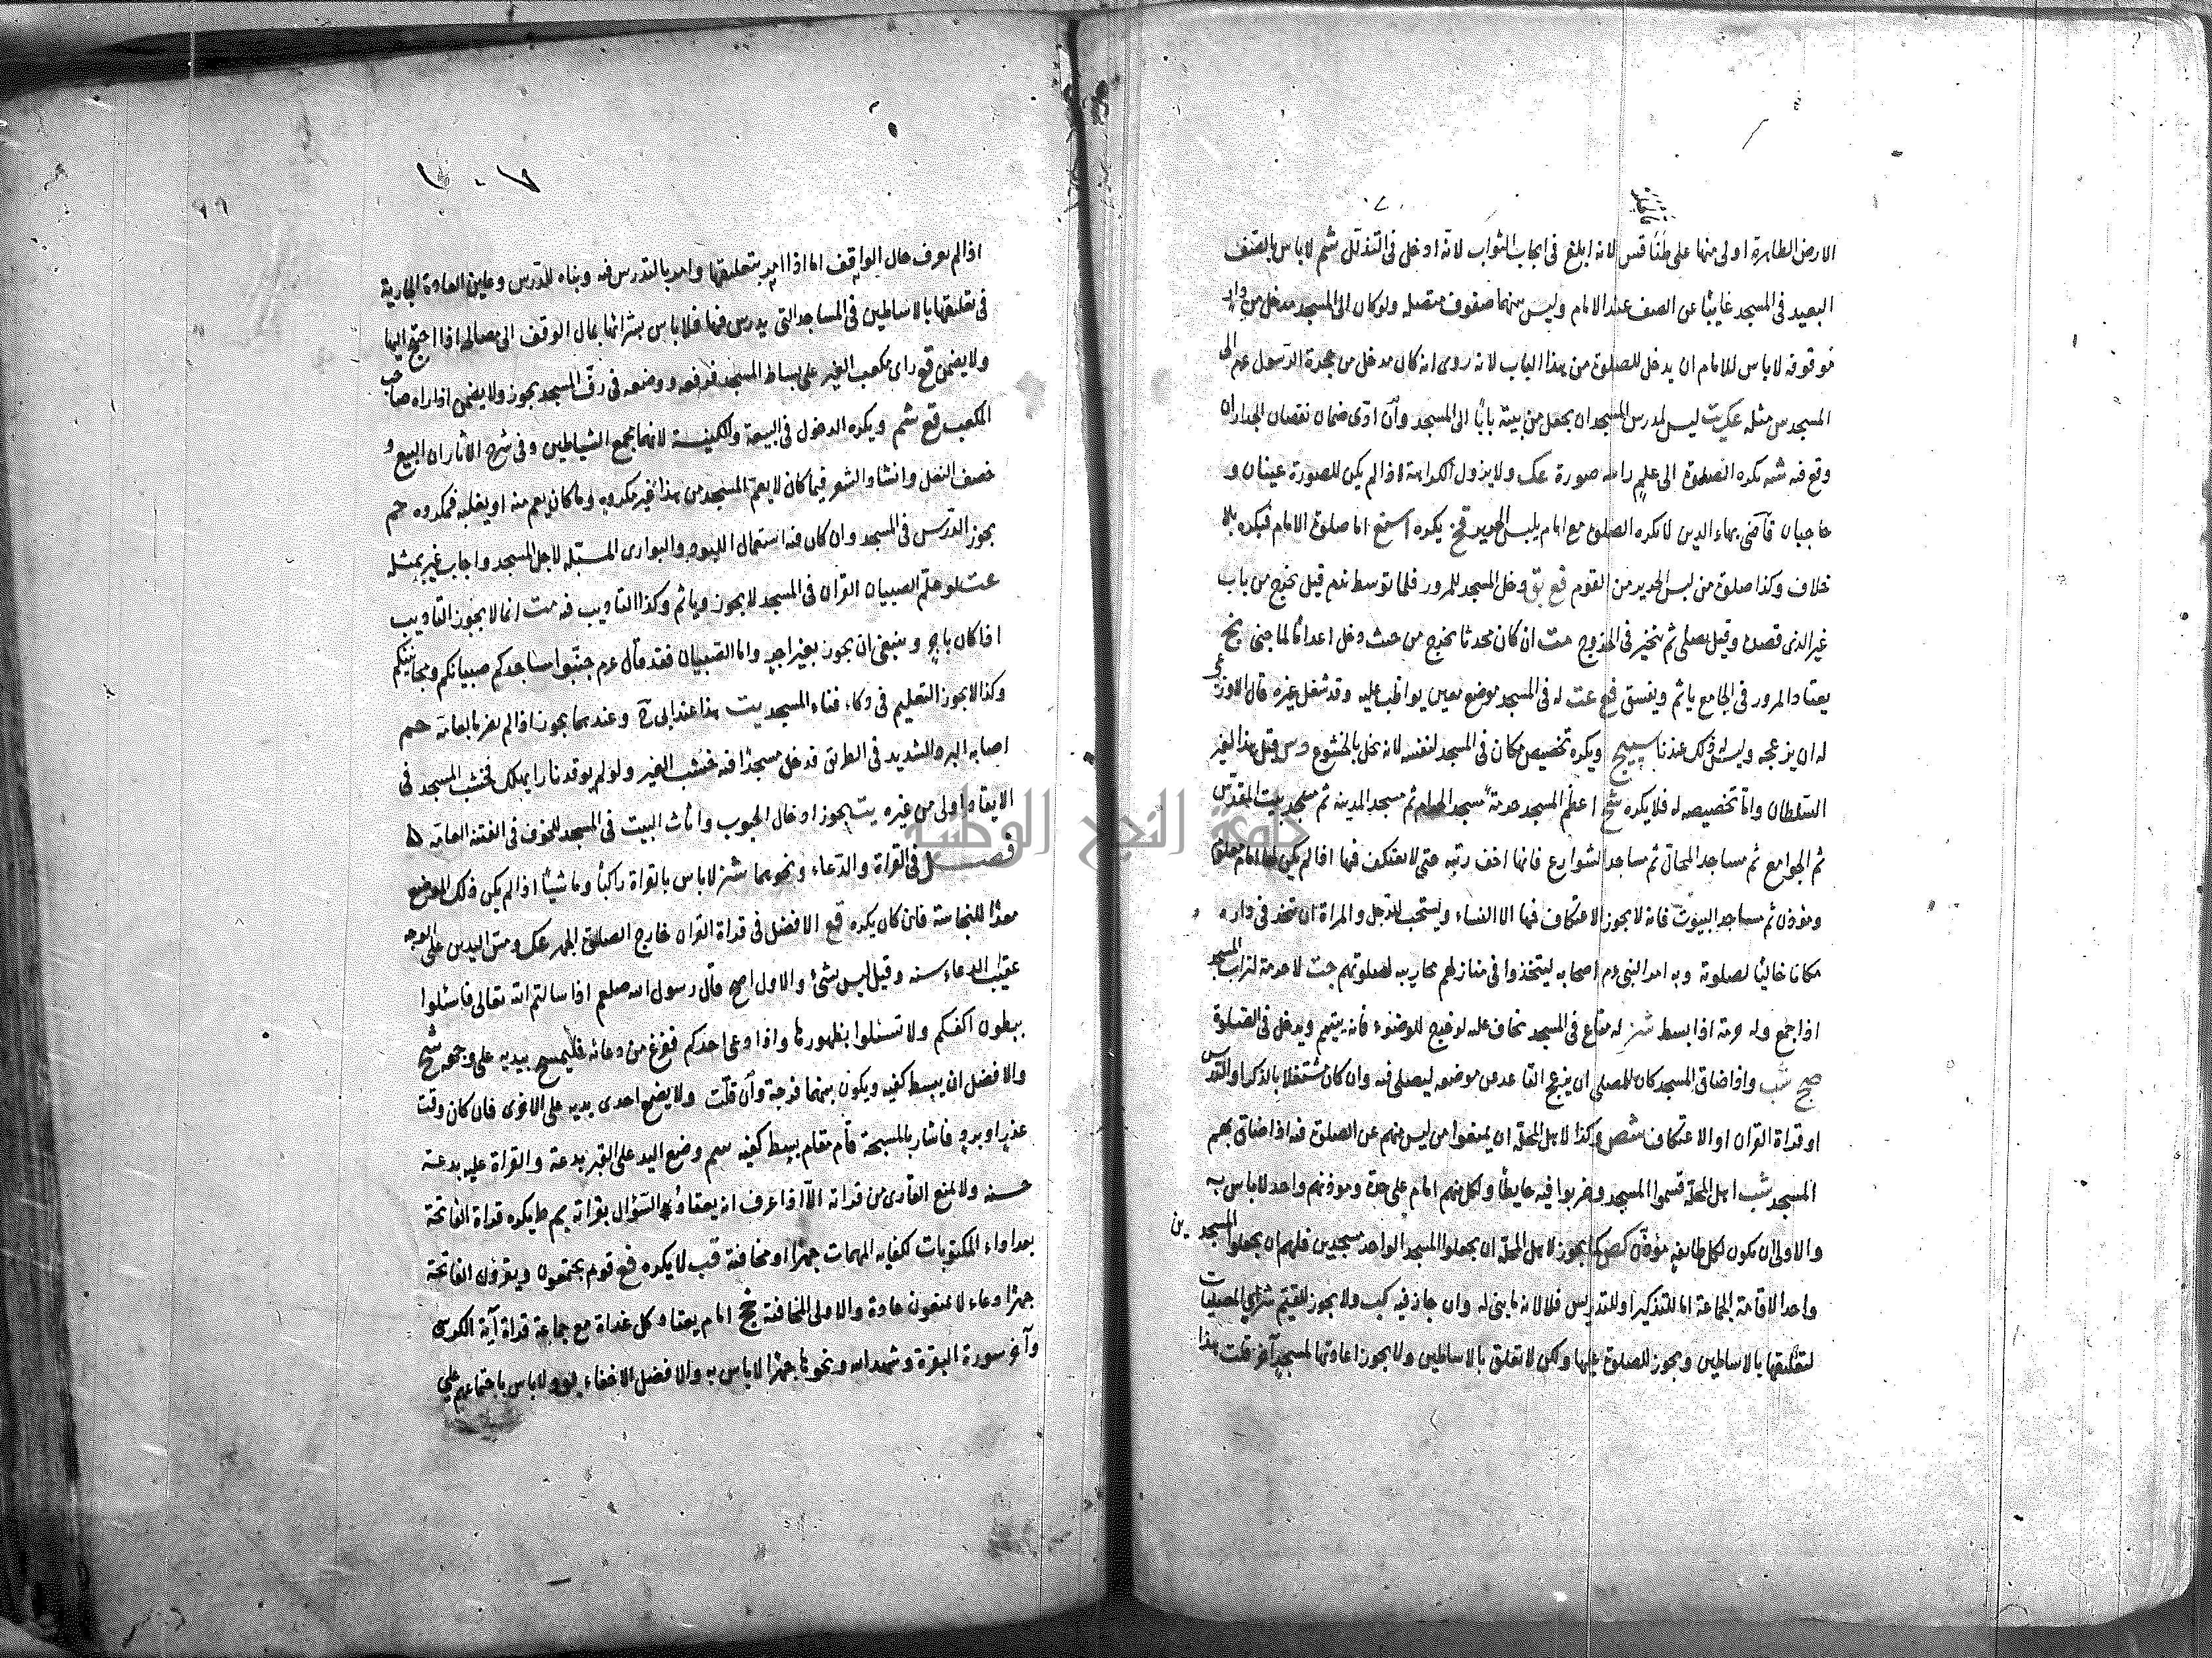 الارض الطاهرة اولى منها على طنافس لانه ابلغ فى ايجاب الثواب لانه ادخل فى التذلل شم لاباس بالصف
البعيد فى المسجد غايبا عن الصف عند الامام وليس بينهما صفوف متصله ولو كان الى المسجد مدخل من دار
موقوفه لاباس للامام ان يدخل للصلوة من هذا الباب لانه روى انه كان يدخل من حجرة الرسول عم الى
المسجد س مثله عك ت ليس لمدرس المسجد ان يجعل من بيته بابا الى المسجد وان ادى ضمان نقصان الجدار ان
وقع فيه شه تكره الصلوة الى صورة عك ولا يزول الكراهة اذا لم يكن للصورة عينان و
حاجبان قاضى بهاء الدين لا تكره الصلوة مع امام يلبس الحرير قخ يكره اما صلوة الامام فيكره بلا
خلاف وكذا صلوة من لبس الحرير من القوم قع بق دخل المسجد للمرور فلما توسط ندم قيل يخرج من باب
غير الذى قصده وقيل يصلى ثم يتخير فى الخروج مت ان كان محدثا يخرج من حيث دخل اعداما لما جنى بخ
يعتاد المرور فى الجامع ياثم ويفسق قع عت له فى المسجد موضع معين يواظب عليه وقد شغل غيره قال الاوزاعى
له ان يزعجه وليس له ذلك عندنا ويكره تخصيص مكان فى المسجد لنفسه لانه يخل بالخشوع
السلطان واما تخصيصه له فلا يكره شخ اعظم المسجد حرمة مسجد الحرام ثم مسجد المدينه ثم مسجد بيت المقدس
ثم الجوامع ثم مساجد المحال ثم مساجد الشوارع فانها اخف رتبه حتى لا يعتكف فيها اذا لم يكن لها امام معلوم
ومؤذن ثم مساجد البيوت فانه لا يجوز الاعتكاف فيها الا النساء ويستحب للرجل والمراة ان تتخذ فى داره
مكانا خاليا لصلوته وبه امر النبى عم اصحابه ليتخذوا فى منازلهم محاريب لصلوتهم جت لا حرمة لتراب المسجد
اذا جمع وله حرمة اذا بسط شز له متاع فى المسجد يخاف عليه لو خرج للوضوء فانه يتيمم ويدخل فى الصلوة
صح شب واذا ضاق المسجد كان للمصلى ان يزعج القاعد عن موضعه ليصلى فيه وان كان مشتغلا بالذكر او الدرس
او قراة القران او الاعتكاف شص وكذا لاهل المحلة ان يمنعوا من ليس منهم عن الصلوة فيه اذا ضاق بهم
المسجد شب اهل المحلة قسموا المسجد وضربوا فيه حايطا ولكل منهم امام على حدة ومؤذنهم واحد لاباس به
والاولى ان يكون لكل طايفه مؤذن كص كما يجوز لاهل المحلة ان يجعلوا المسجد الواحد مسجدين فلهم ان يجعلوا المسجدين
واحدا لاقامة الجماعة اما للتذكير او للتدريس فلا لانه ما بنى له وان جاز فيه كب ولا يجوز للقيم شراى المصليات
لتعليقها بالاساطين ويجوز للصلوة عليها ولكن لا تعلق بالاساطين ولا يجوز اعادتها لمسجد آخر قلت هذا
اذا لم يعرف حال الواقف اما اذا امر بتعليقها وامر بالتدريس فيه وبناه للدرس وعاين العادة الجارية
فى تعليقها بالاساطين فى المساجد التى يدرس فيها فلاباس بشرائها بمال الوقف الى مصالحه اذا احتج اليها
ولا يضمن قع راى مكعب الغير على بساط المسجد فرفعه ووضعه فى رف المسجد يجوز ولا يضمن اذا راه صاحب
المكعب قع شم ويكره الدخول فى البيعة والكنيسة لانهما مجمع الشياطين وفى شرح الاثار ان البيع و
خصف النعل وانشاد الشعر فيما كان لا يعم المسجد من هذا غير مكروه وما كان يعم منه او يغلبه فمكروه حم
يجوز الدرس فى المسجد وان كان فيه استعمال اللبود والبوارى المسبله لاجل المسجد واجاب غيره بمثله
عت لو علم الصبيان القران فى المسجد لا يجوز وياثم وكذا التاديب فيه مت انما لا يجوز التاديب
اذا كان باجر وينبغى ان يجوز بغير اجر واما الصبيان فقد قال عم جنبوا مساجدكم صبيانكم ومجانينكم
وكذا لا يجوز التعليم فى دكان فناء المسجد يت هذا عند ابى ح وعندهما يجوز اذا لم يضر بالعامة حم
اصابه البرد الشديد فى الطريق فدخل مسجدا فيه خشب الغير ولو لم يوقد نارا يهلك فخشب المسجد فى
الايقاد اولى من غيره يت يجوز ادخال الحبوب واثاث البيت فى المسجد للخوف فى الفتنة العامة
فصل فى القراة والدعاء ونحوهما شز لاباس بالقراة راكبا وماشيا اذا لم يكن ذلك الموضع
معدا للنجاسة فان كان يكره قع الافضل فى قراة القران خارج الصلوة الجهر عك ومس اليدين على الوجه
عقيب الدعاء سنه وقيل ليس بشئ والاول اصح قال رسول الله صلعم اذا سالتم الله تعالى فاسئلوا
ببطون اكفكم ولا تسئلوا بظهورها واذا دعى احدكم ففرغ من دعائه فليمسح بيديه على وجهه شح
والافضل ان يبسط كفيه ويكون بينهما فرجة وان قلت ولا يضع احدى يديه على الاخرى فان كان وقت
عذر او برد فاشار بالمسبحة قام مقام بسط كفيه سم وضع اليد على القبر بدعة والقراة عليه بدعة
حسنه ولا يمنع القارى من قراته الا اذا عرف انه يعتاد السؤال بقراته يم ط يكره قراة الفاتحة
بعد اداء المكتوبات لكفاية المهمات جهرا او مخافتة قب لا يكره قع قوم يجتمعون ويقرؤن الفاتحة
جهرا دعاء لا يمنعون عادة والاولى المخافتة خج امام يعتاد كل غداة مع جماعة قراة آية الكرسى
وآخر سورة البقرة وشهد الله ونحوها جهرا لاباس به والافضل الاخفاء ولاباس باجتماعهم على